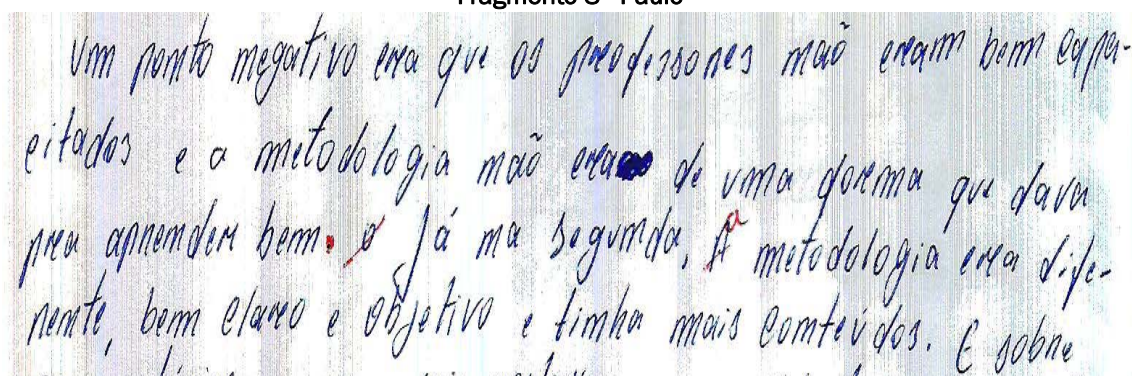 Fragmento 3 - Paulo
Um ponto negativo era que os professores não eram bem capa-
citados e a metodologia não era de uma forma que dava
pra aprender bem. Já na segunda, a metodologia era dife-
rente, bem claro e objetivo e tinha mais conteúdos. E sobre